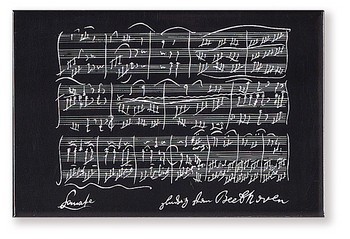 Sonate
Ludwig van Beethoven